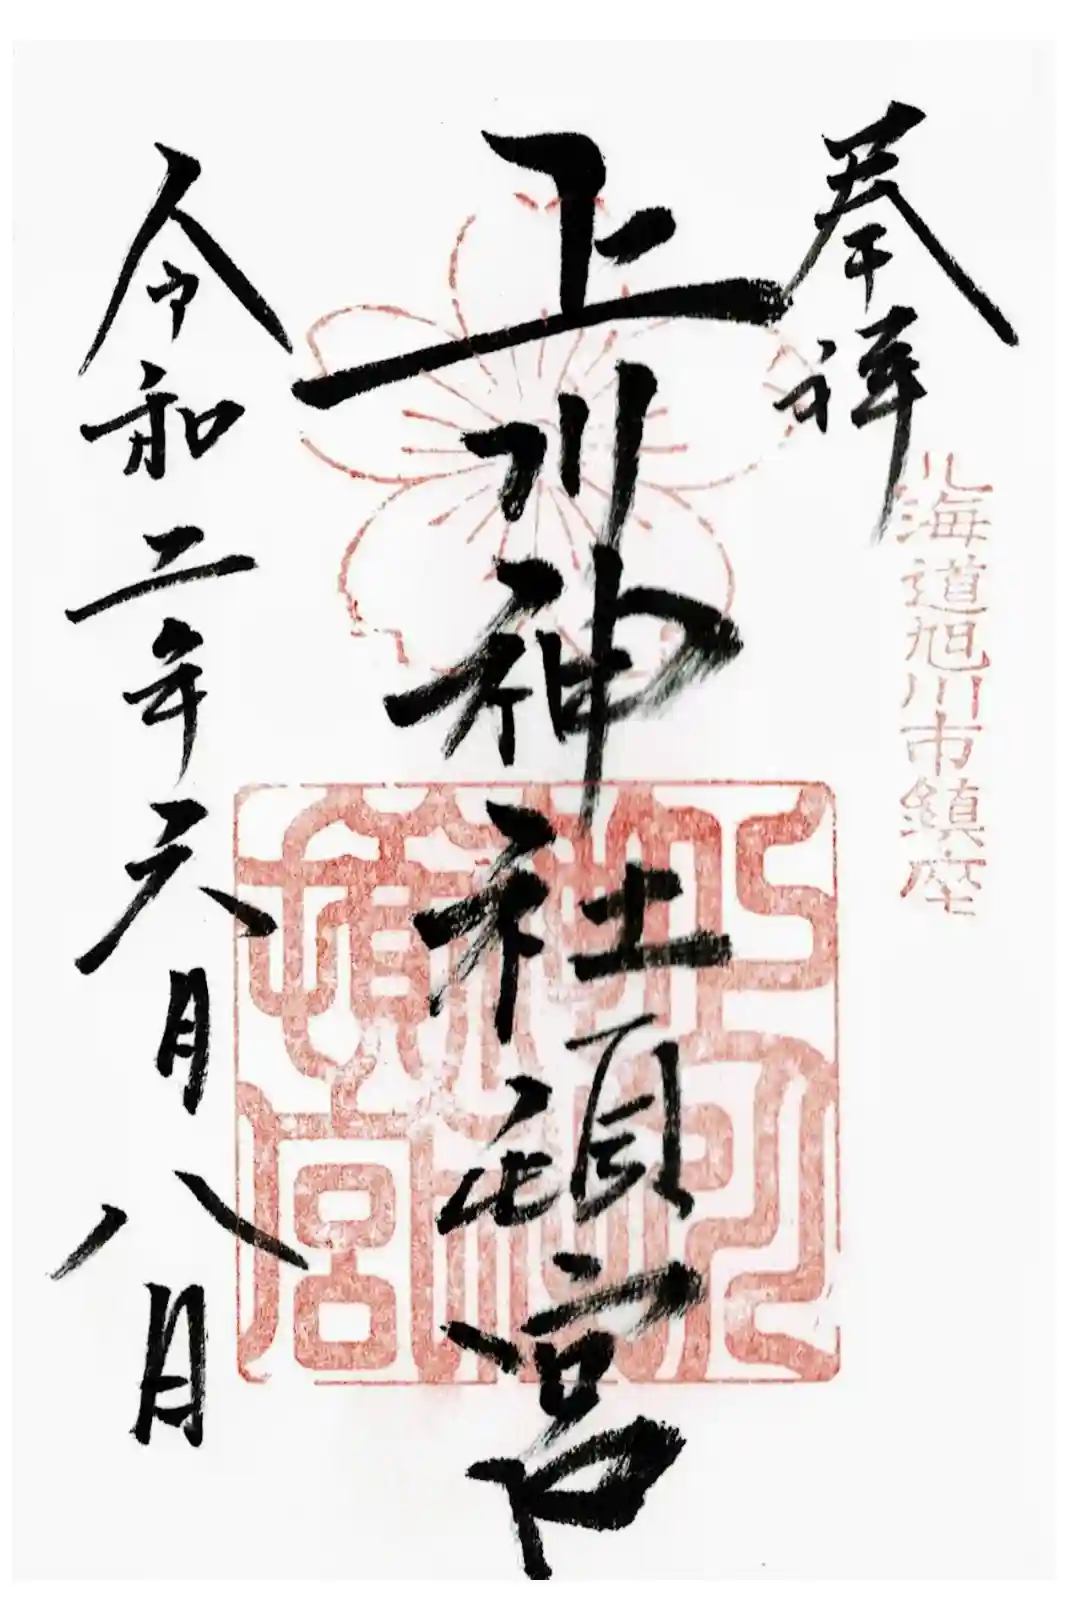 奉拝
北海道旭川市鎮座
上川神社頓宮
上川神社頓宮
令和二年六月八日